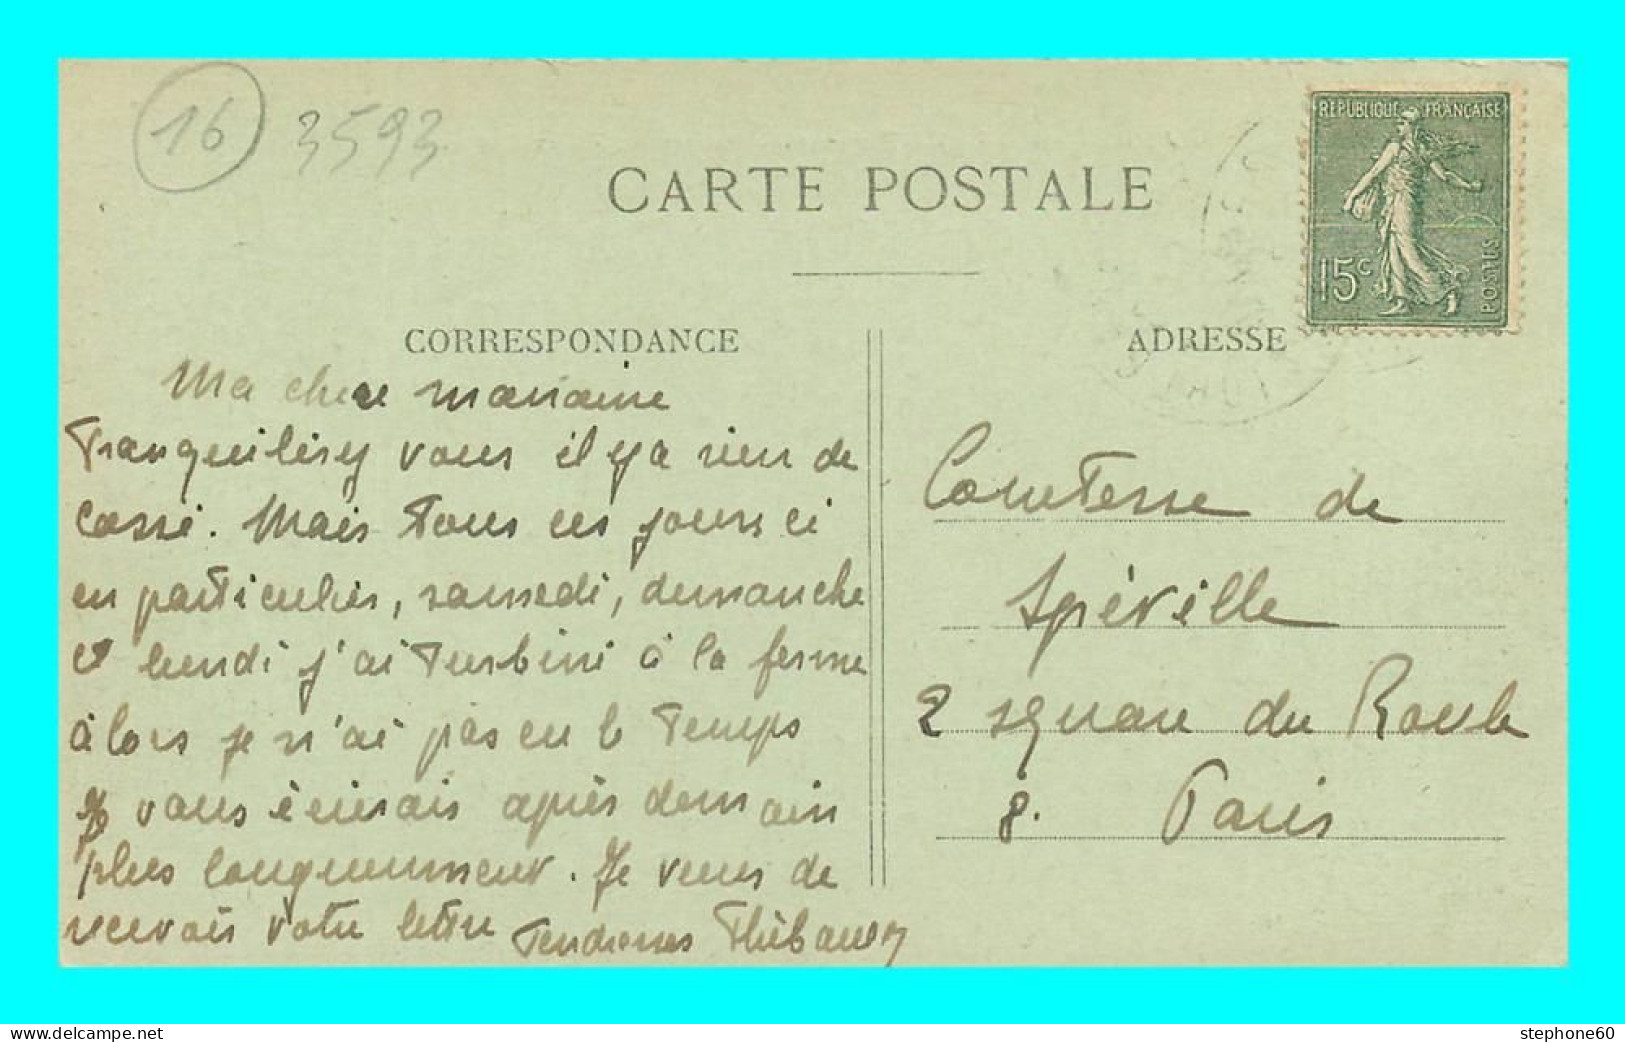 16 3593
CARTE POSTALE
REPUBLIQUE FRANÇAISE
15c POSTES
CORRESPONDANCE
ADRESSE
Ma chere marraine
Tranquilisez vous il y a rien de
cassé. Mais tous ces jours ci
en particulier, samedi, demanche
et lundi j'ai turbiné à la ferme
àlors je n'ai pas eu le temps
Je vous écrirais après demain
plus longuement. Je viens de
recevoir votre lettre Tendresses
Comtesse de
Spéville
2 square du Roule
8. Paris
delcampe.net
stephone60